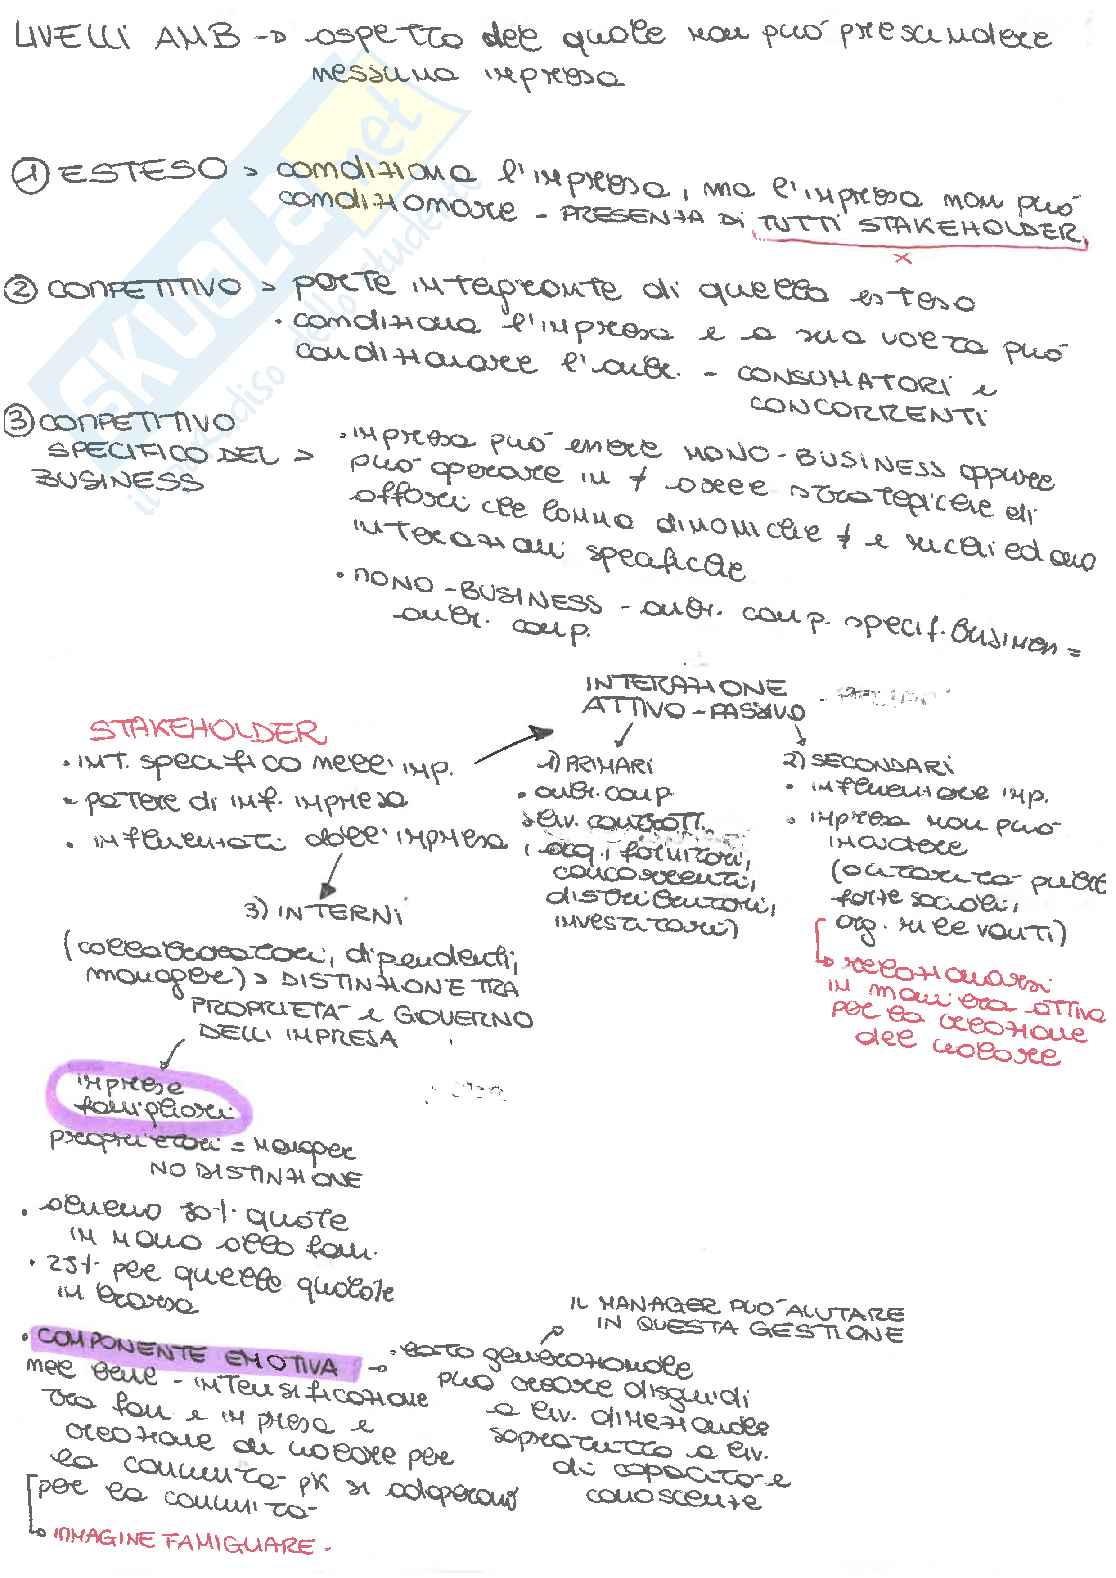 LIVELLI AMB -> aspetto del quale non può prescindere
nessuna impresa
① ESTESO > condiziona l'impresa, ma l'impresa non può
condizionare - PRESENZA DI TUTTI STAKEHOLDER
x
② COMPETITIVO > parte integrante di quello esteso
• condiziona l'impresa e a sua volta può
condizionare l'ambr. - CONSUMATORI e
CONCORRENTI
③ COMPETITIVO
SPECIFICO DEL >
BUSINESS
• impresa può essere MONO-BUSINESS oppure
può operare in ≠ aree strategiche di
affari che hanno dinamiche ≠ e richiedono
interazioni specifiche
• MONO-BUSINESS - ambr. comp. specif. business =
ambr. comp.
INTERAZIONE
ATTIVO-PASSIVO
STAKEHOLDER
• INT. specifico nell'imp.
- potere di inf. impresa
• influenzati dall'impresa
1) PRIMARI
• ambr. comp
liv. contratt.
(org., fornitori,
concorrenti,
distributori,
investitori)
2) SECONDARI
• influenzare imp.
• impresa non può
incidere
(autorità pubbl
forze sociali,
org. rilevanti)
relazionarsi
in maniera attiva
per la creazione
del valore
3) INTERNI
(collaboratori, dipendenti,
manager) > DISTINZIONE TRA
PROPRIETÀ e GOVERNO
DELL'IMPRESA
imprese
famigliari
proprietari = manager
NO DISTINZIONE
• almeno 50% quote
in mano alla fam.
• 25% per quelle quotate
in borsa
• COMPONENTE EMOTIVA
nel bene - intensificazione
tra fam. e impresa e
creazione di valore per
la comunità pk si adoperano
per la comunità
IMMAGINE FAMIGLIARE.
IL MANAGER PUÒ AIUTARE
IN QUESTA GESTIONE
• lato generazionale
può creare disguidi
a liv. direzionale
soprattutto a liv.
di capacità e
conoscenze
SKUOLA.net
il paradiso dello studente